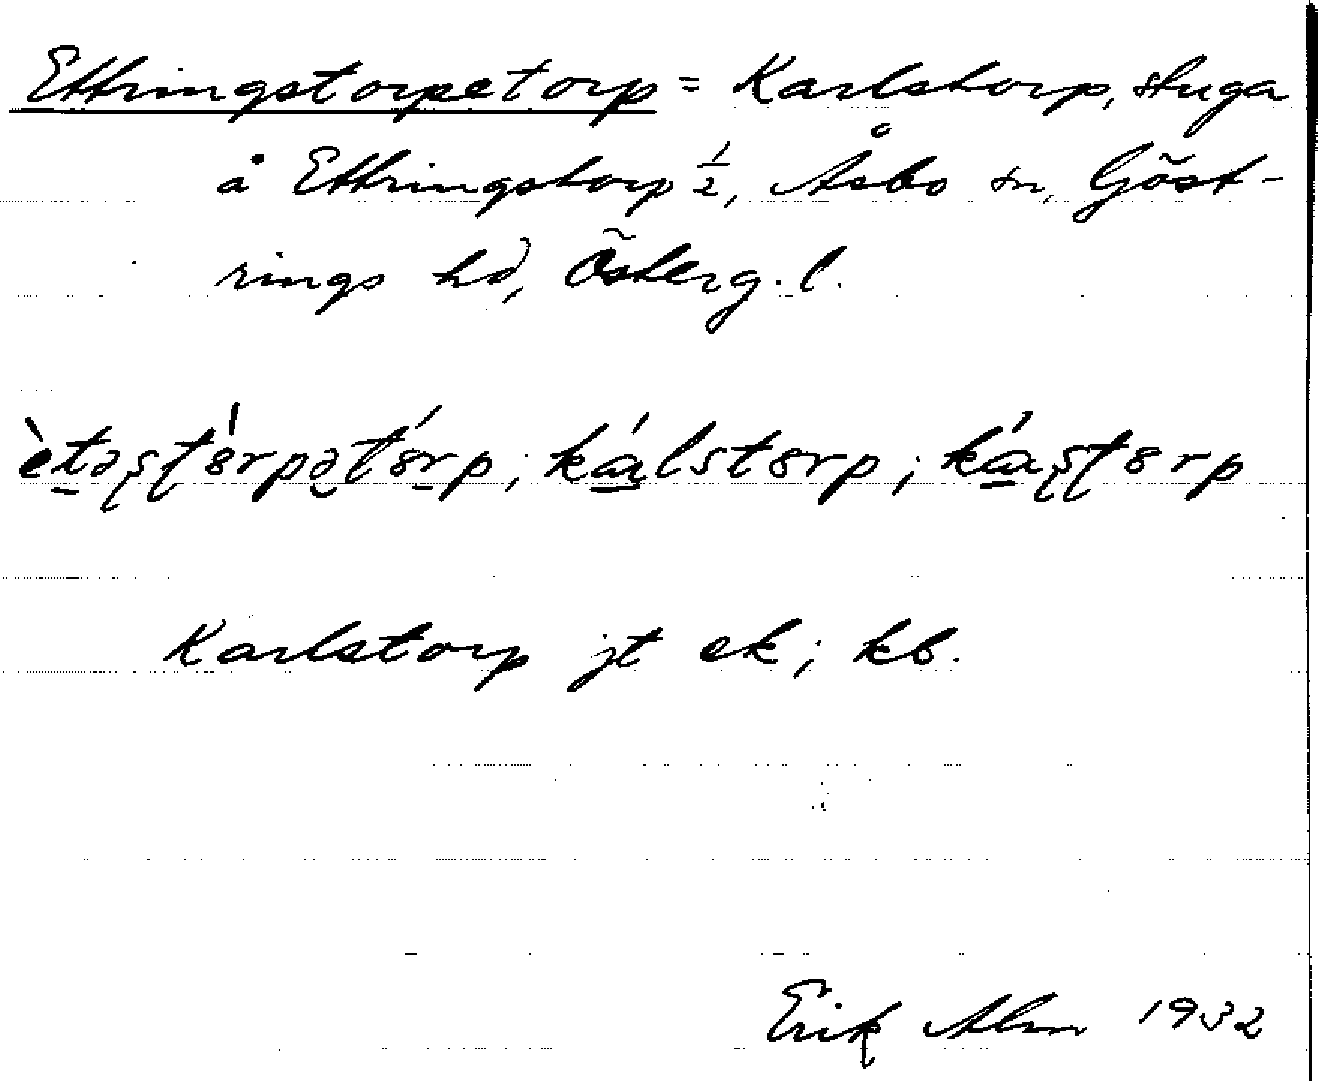 Ettringstorpetorp = Karlstorp, stuga
å Ettringstorp 1/2, Åsbo sn, Göst-
rings hd, Österg. l.
ètəʂʈórpətórp; kálstorp; káʂʈorp
Karlstorp jt ek; kb.
Erik Alm 1932